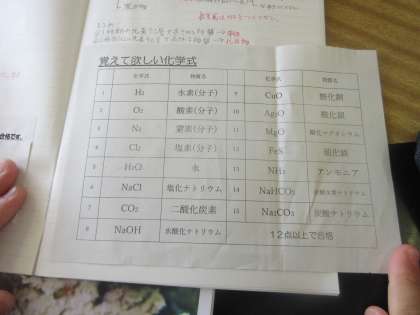 覚えて欲しい化学式
化学式 物質名 化学式 物質名
1 H₂ 水素(分子) 9 CuO 酸化銅
2 O₂ 酸素(分子) 10 Ag₂O 酸化銀
3 N₂ 窒素(分子) 11 MgO 酸化マグネシウム
4 Cl₂ 塩素(分子) 12 FeS 硫化鉄
5 H₂O 水 13 NH₃ アンモニア
6 NaCl 塩化ナトリウム 14 NaHCO₃ 炭酸水素ナトリウム
7 CO₂ 二酸化炭素 15 Na₂CO₃ 炭酸ナトリウム
8 NaOH 水酸化ナトリウム 12点以上で合格
合格です。